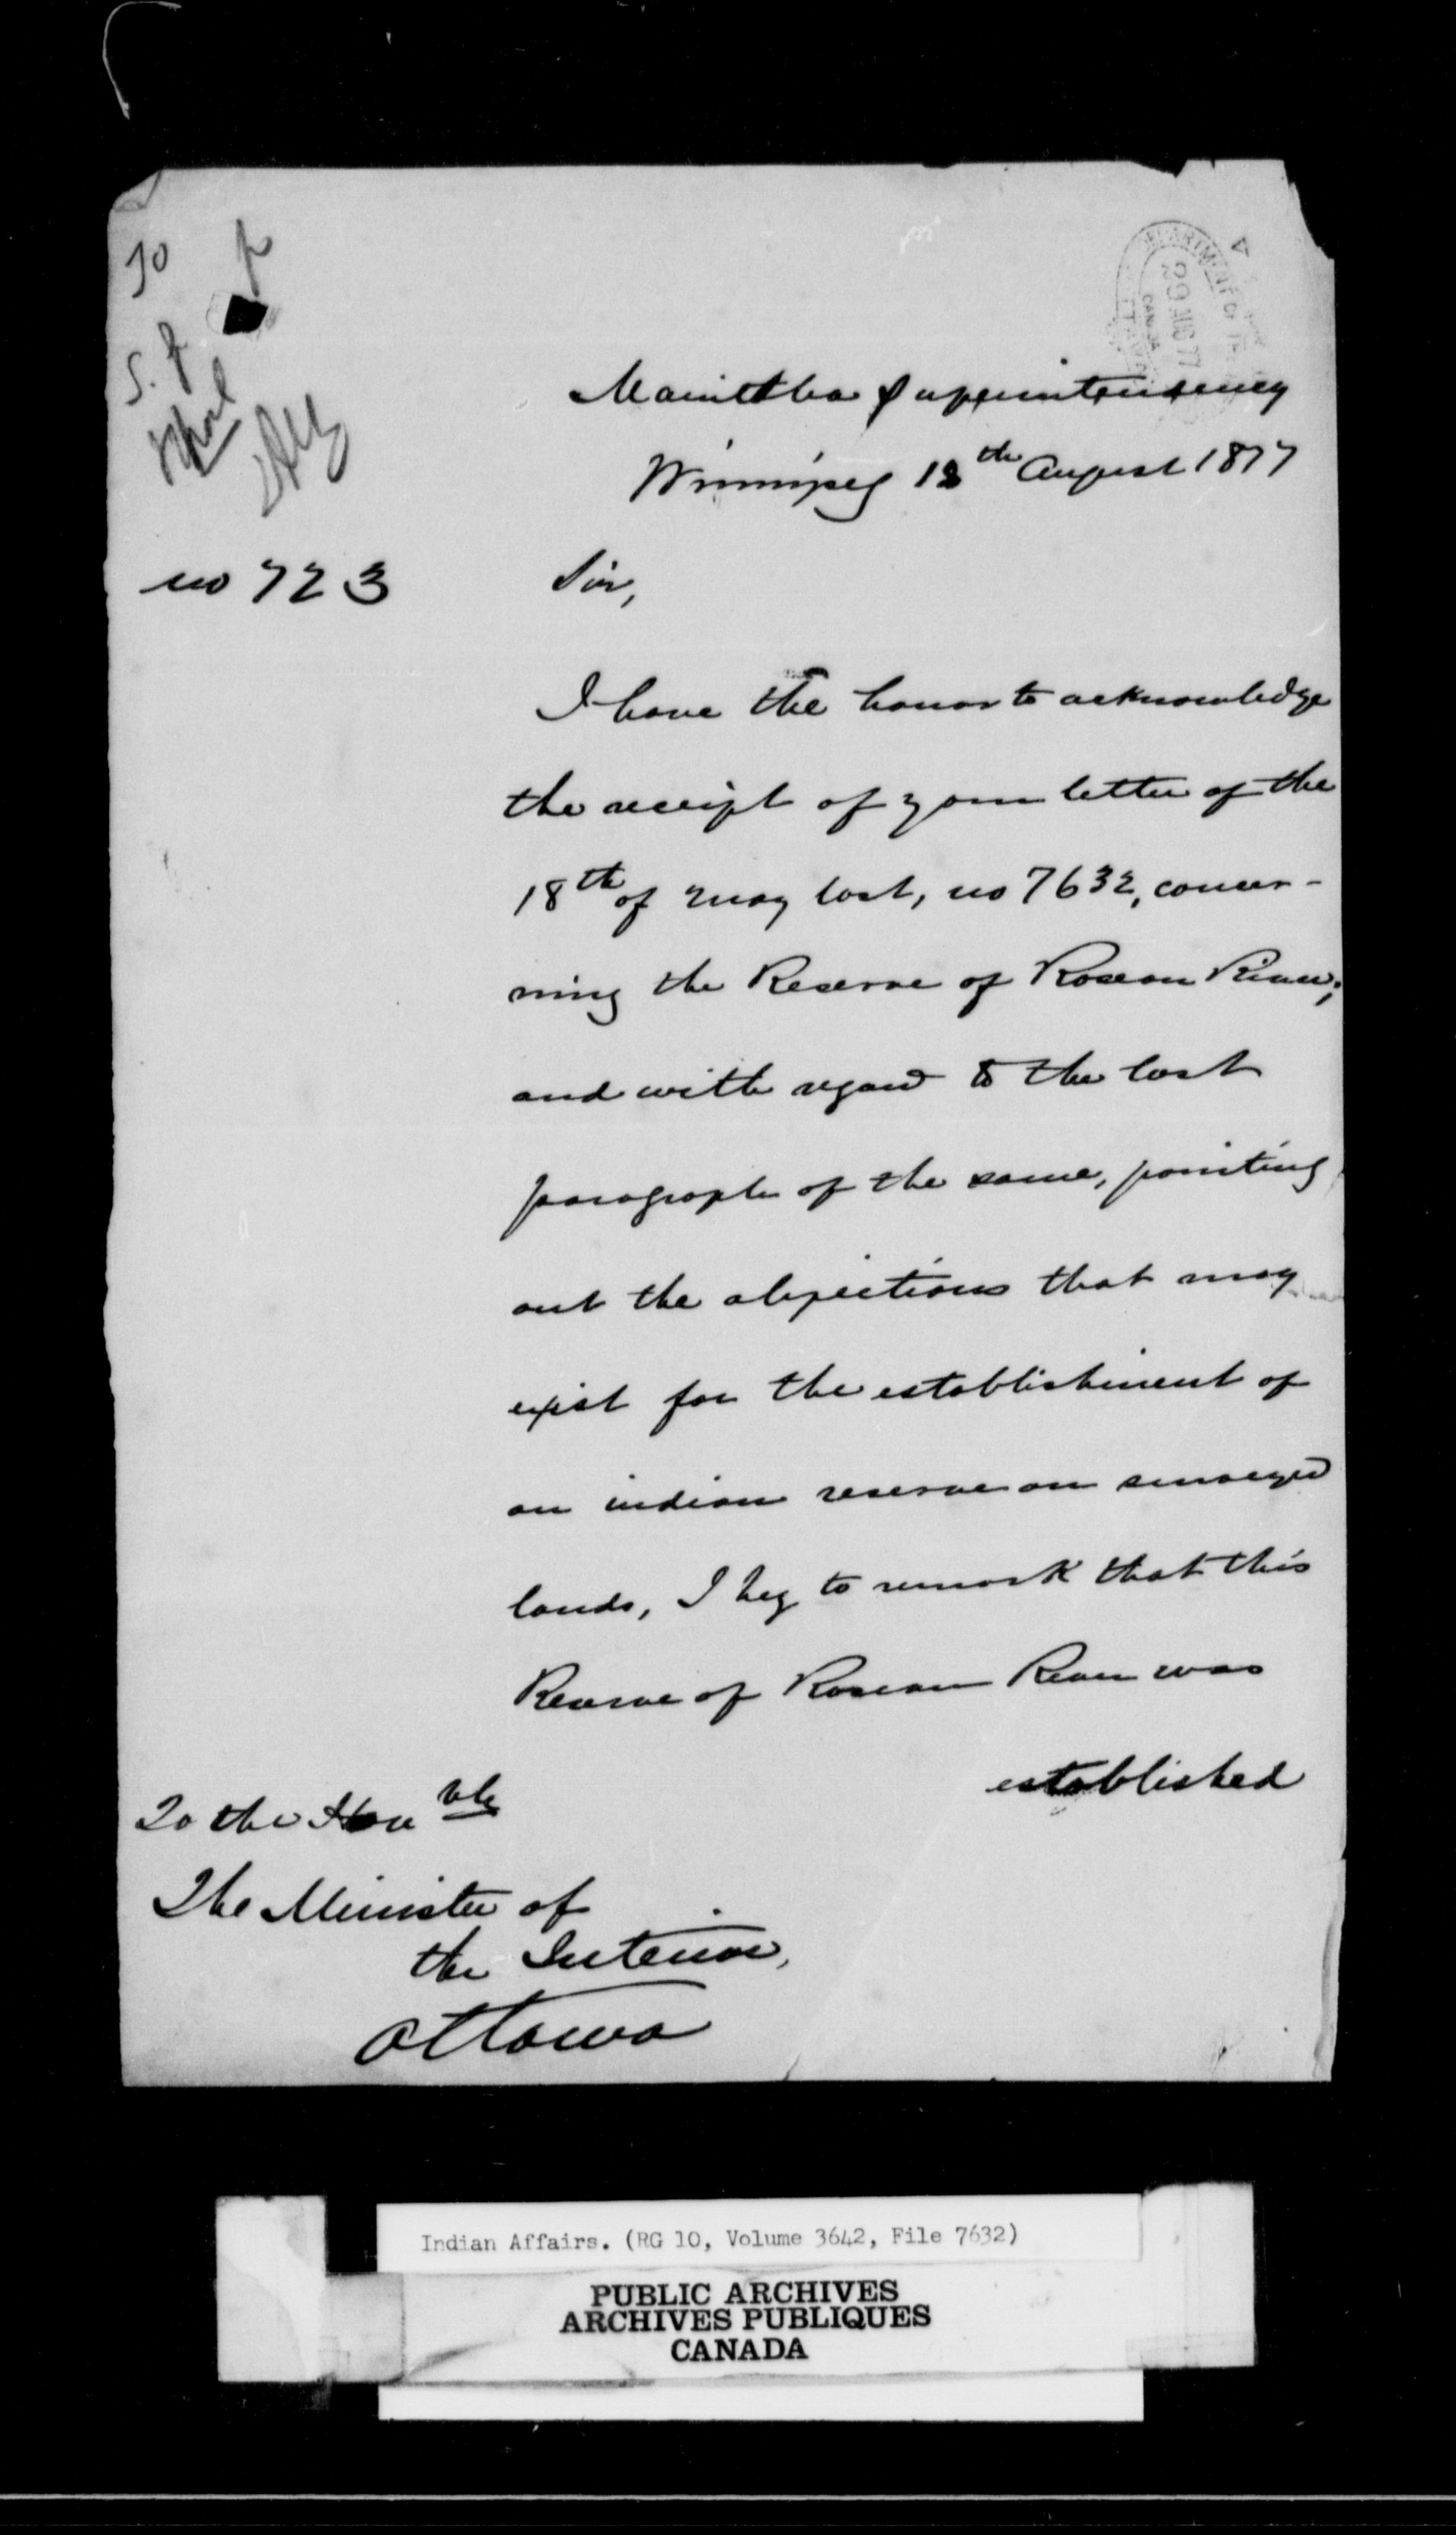 30
DEPARTMENT OF THE
29 AUG 77
CANADA
Manitoba Superintendency
Winnipeg 18th August 1877
no 723
Sir,
I have the honor to acknowledge
the receipt of your letter of the
18th of May last, no 7632, concer-
ning the Reserve of Roseau River;
and with regard to the last
paragraph of the same, pointing
out the objections that may
exist for the establishment of
an indian reserve on surveyed
lands, I beg to remark that this
Reserve of Roseau River was
established
To the Honble
The Minister of
the Interior,
Ottawa
Indian Affairs. (RG 10, Volume 3642, File 7632)
PUBLIC ARCHIVES
ARCHIVES PUBLIQUES
CANADA